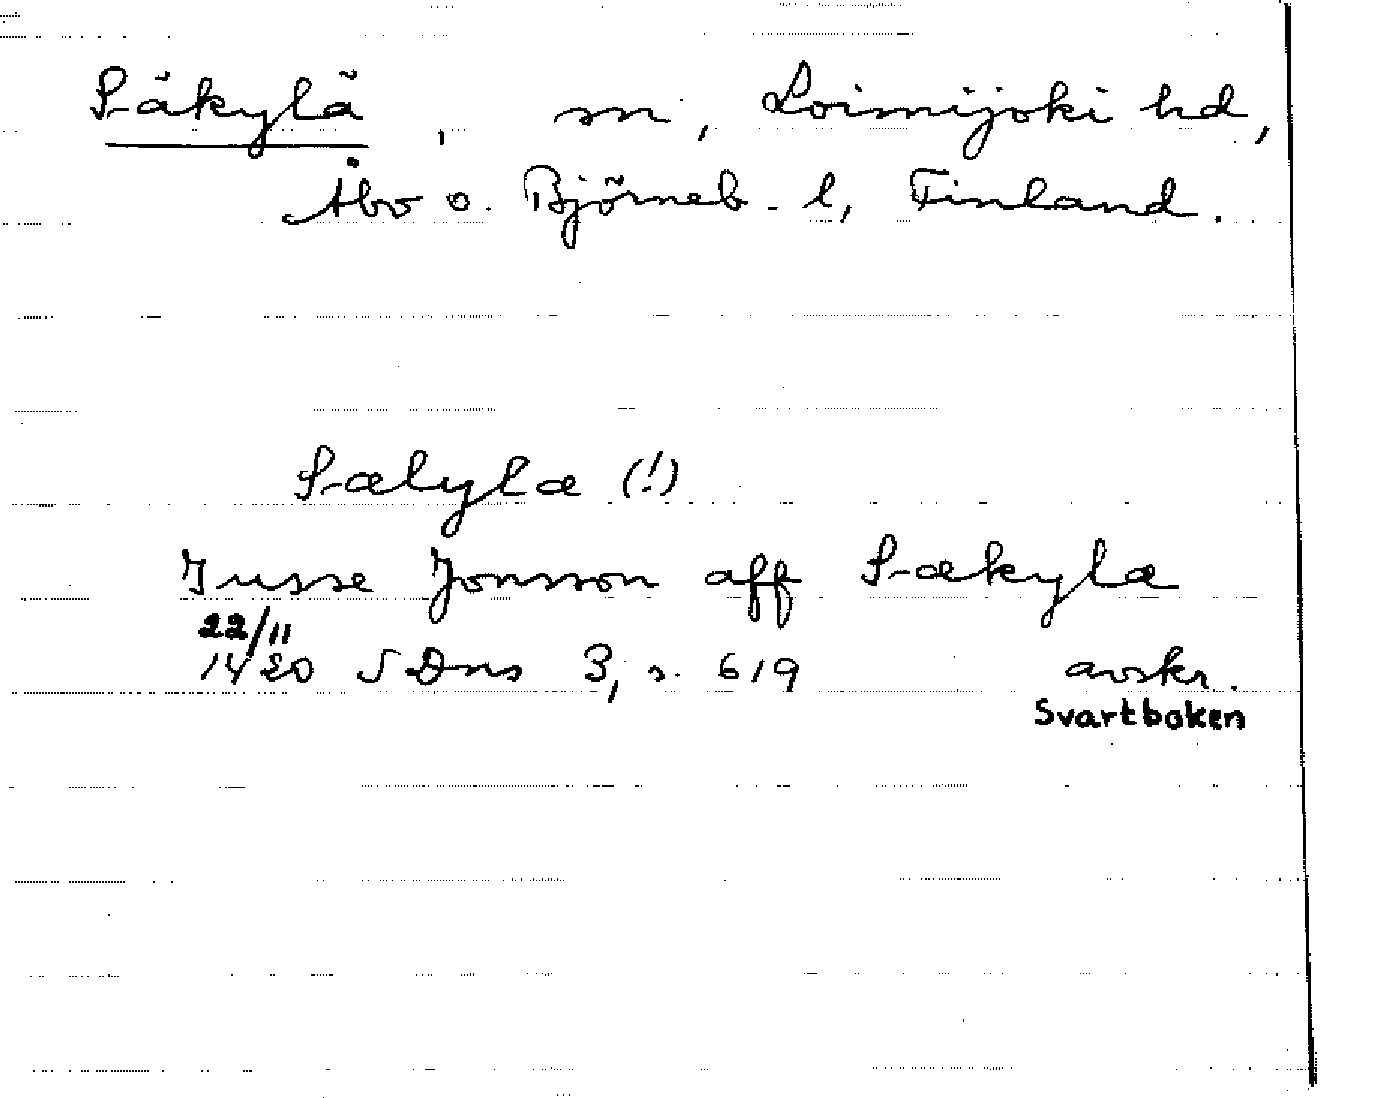 Säkylä, sn, Loimijoki hd,
Åbo o. Björneb. l, Finland.
Sælylæ (!)
Jusse Jonsson aff Sækylæ
22/11
1420 SDns 3, s. 619 avskr.
Svartboken